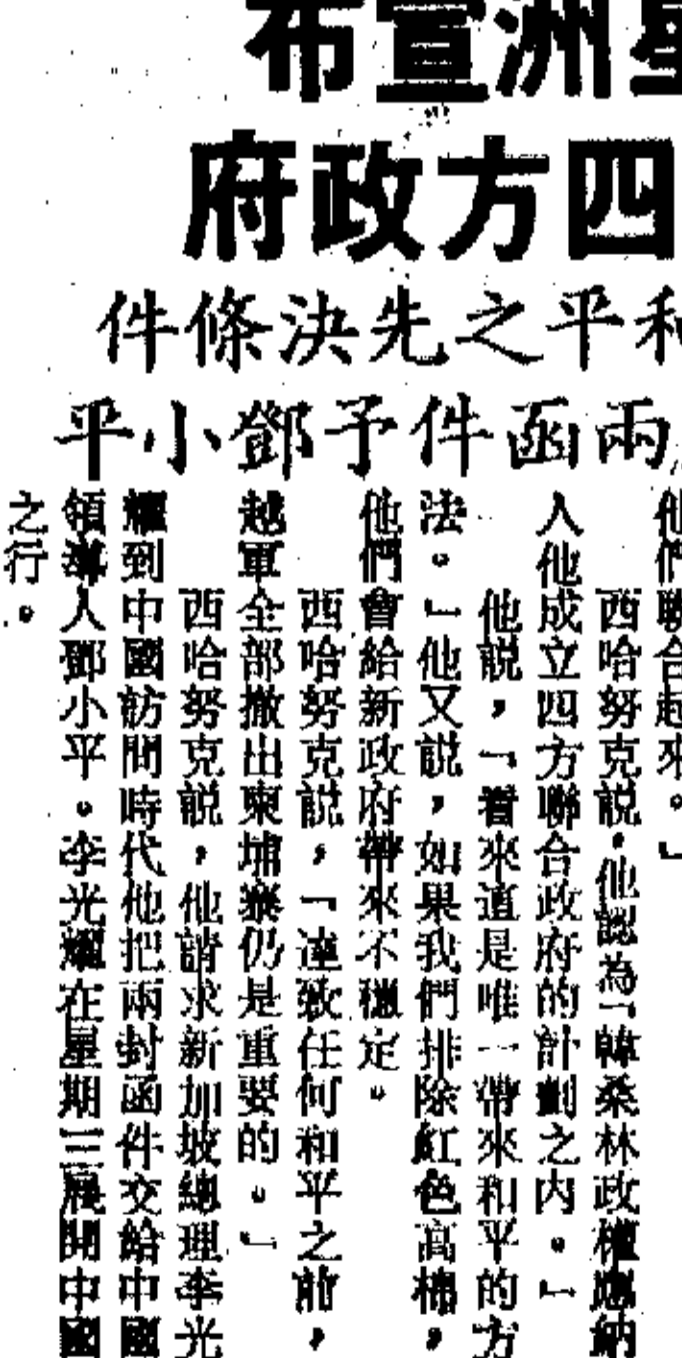 星洲宣布
四方政府
和平之先決條件
兩函件予鄧小平
他們聯合起來。」
西哈努克説，他認為「韓桑林政權應納
入他成立四方聯合政府的計劃之內。」
他説，「看來這是唯一帶來和平的方
法。」他又説，如果我們排除紅色高棉，
他們會給新政府帶來不穩定。
西哈努克説，「達致任何和平之前，
越軍全部撤出柬埔寨仍是重要的。」
西哈努克説，他請求新加坡總理李光
耀到中國訪問時代他把兩封函件交給中國
領導人鄧小平。李光耀在星期三展開中國
之行。